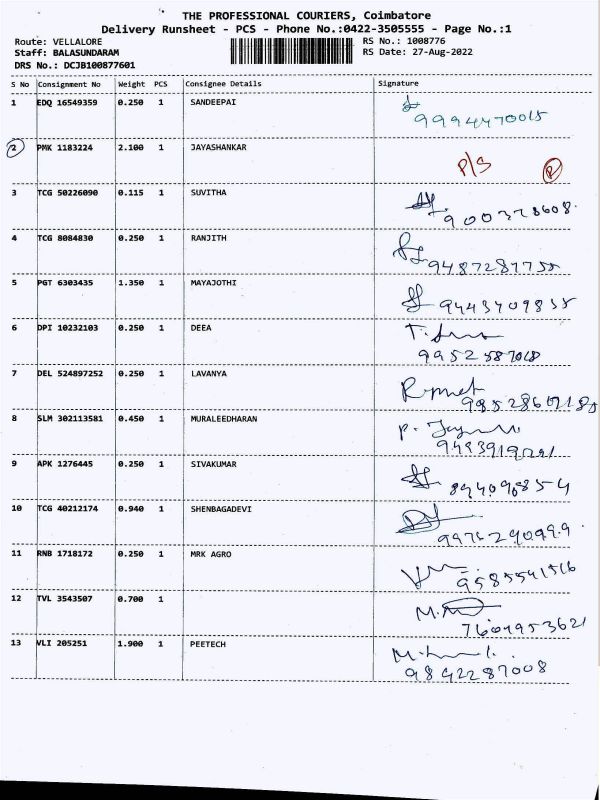 THE PROFESSIONAL COURIERS, Coimbatore
Delivery Runsheet - PCS - Phone No.:0422-3505555 - Page No.:1
Route: VELLALORE RS No.: 1008776
Staff: BALASUNDARAM RS Date: 27-Aug-2022
DRS No.: DCJB100877601
S No Consignment No Weight PCS Consignee Details Signature
1 EDQ 16549359 0.250 1 SANDEEPAI
9994470015
2 PMK 1183224 2.100 1 JAYASHANKAR
P/S
3 TCG 50226090 0.115 1 SUVITHA
4 TCG 8084830 0.250 1 RANJITH
9487287755
5 PGT 6303435 1.350 1 MAYAJOTHI
9443709835
6 DPI 10232103 0.250 1 DEEA
9952587068
7 DEL 524897252 0.250 1 LAVANYA
8 SLM 302113581 0.450 1 MURALEEDHARAN
9 APK 1276445 0.250 1 SIVAKUMAR
10 TCG 40212174 0.940 1 SHENBAGADEVI
11 RNB 1718172 0.250 1 MRK AGRO
9585541516
12 TVL 3543507 0.700 1
7604953621
13 VLI 205251 1.900 1 PEETECH
9842287008